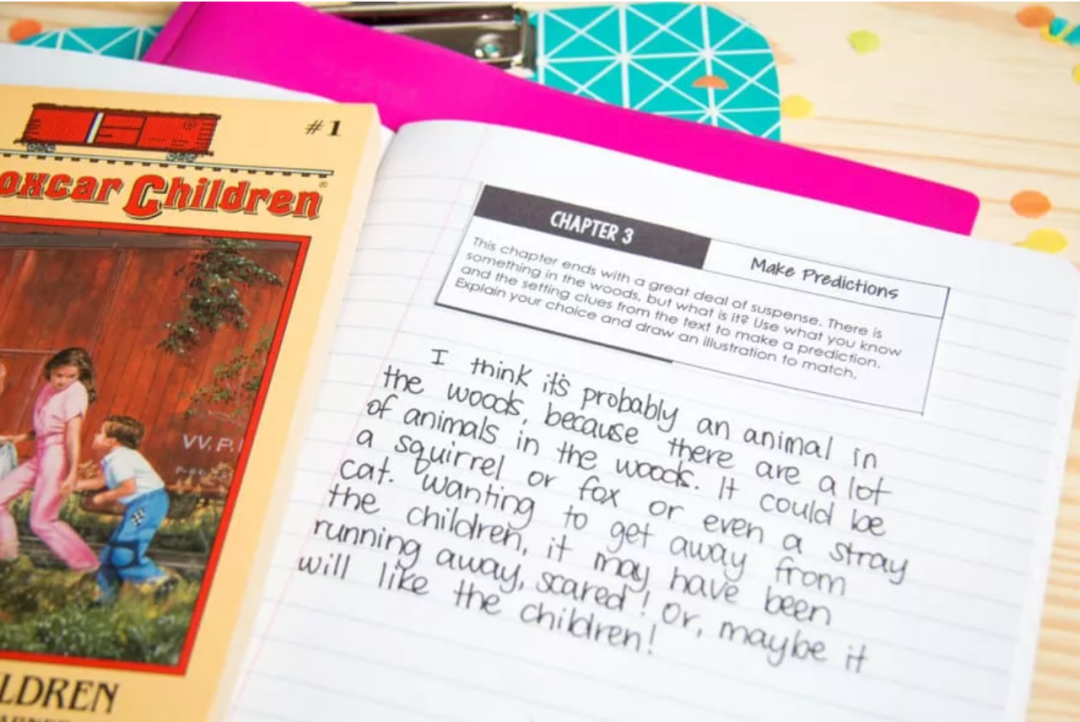 #1
oxcar Children
VV. P.
LDREN
CHAPTER 3
Make Predictions
This chapter ends with a great deal of suspense. There is
something in the woods, but what is it? Use what you know
and the setting clues from the text to make a prediction.
Explain your choice and draw an illustration to match.
I think it's probably an animal in
the woods, because there are a lot
of animals in the woods. It could be
a squirrel or fox or even a stray
cat. Wanting to get away from
the children, it may have been
running away, scared! Or, maybe it
will like the children!